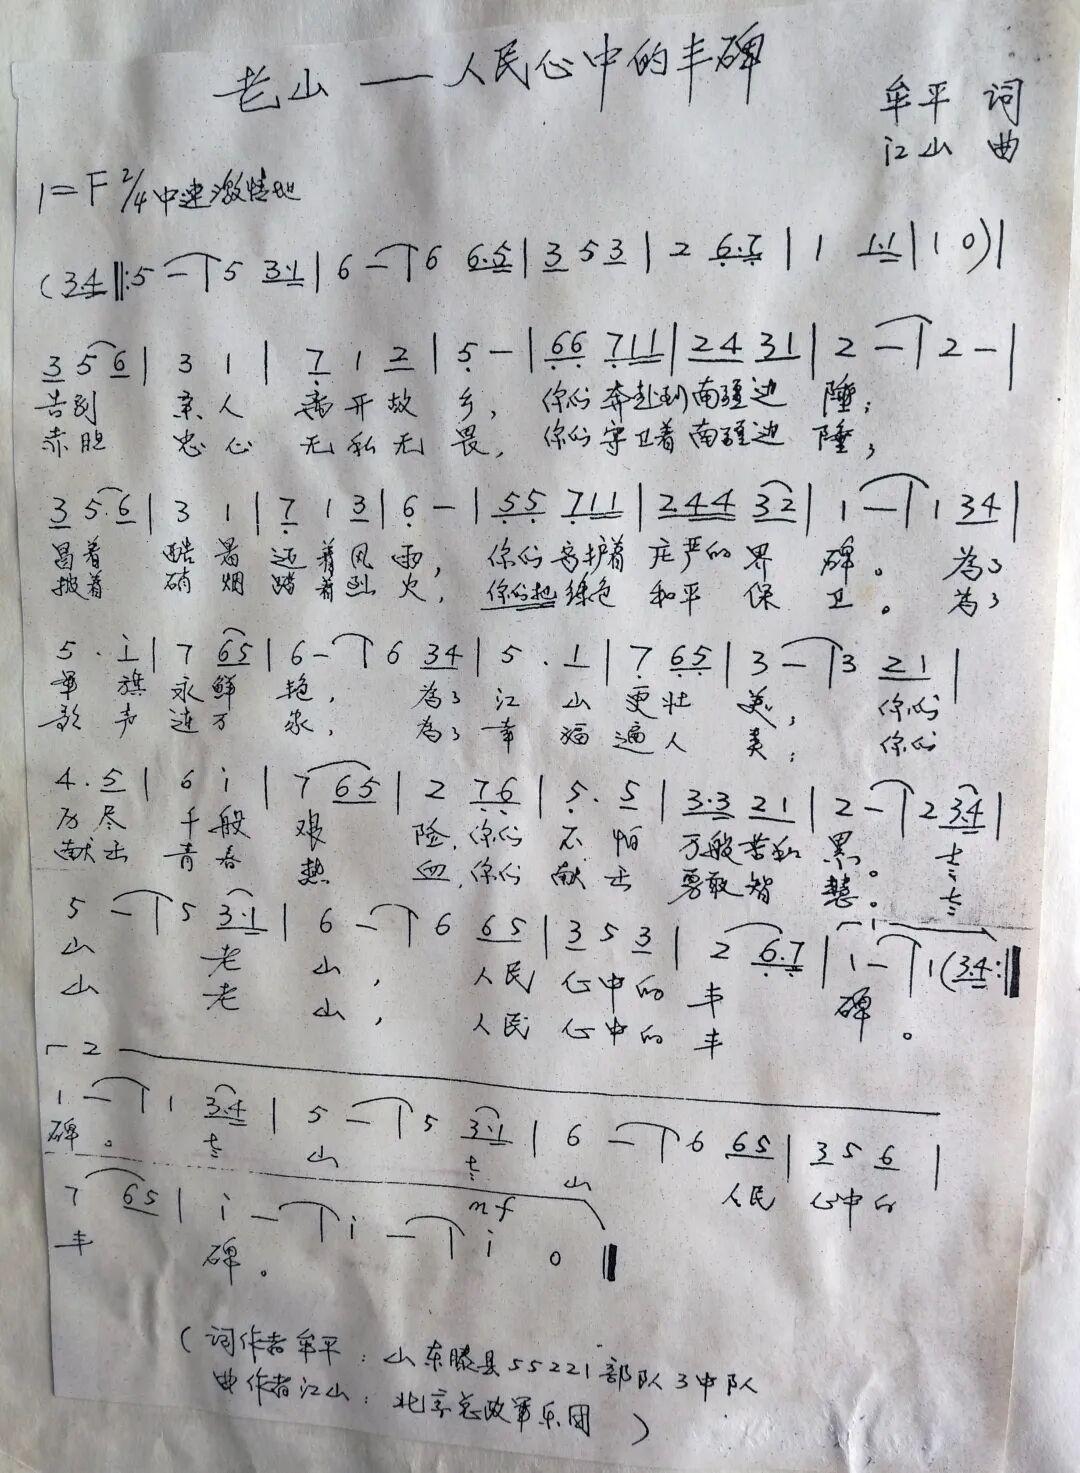 老山——人民心中的丰碑
牟平 词
江山 曲
1=F 2/4 中速 激情地
(3.4‖:5 — | 5 3.1 | 6 — | 6 6.5 | 3 5 3 | 2 6.7 | 1 1.1 | 1 0) |
3 5 6 | 3 1 | 7 1 2 | 5 — | 66 711 | 24 31 | 2 — | 2 — |
告别 亲人 离开故乡, 你们奔赴到南疆边陲;
赤胆 忠心 无私无畏, 你们守卫着南疆边陲;
3 5.6 | 3 1 | 7 1 3 | 6 — | 55 711 | 244 32 | 1 — | 1 34 |
冒着 酷暑 迎着风雨, 你们守护着 庄严的界碑。 为了
披着 硝烟 踏着烈火, 你们把绿色 和平保卫。 为了
5 . i | 7 65 | 6 — | 6 34 | 5 . 1 | 7 65 | 3 — | 3 21 |
军旗永鲜艳, 为了江山更壮美, 你们
歌声连万家, 为了幸福遍人类; 你们
4 . 5 | 6 i | 7 65 | 2 76 | 5 . 5 | 3.3 21 | 2 — | 2 3.4 |
历尽千般艰险,你们不怕万般苦和累。 老
献出青春热血,你们献出勇敢智慧。 老
5 — | 5 3.1 | 6 — | 6 65 | 3 5 3 | 2 6.7 | 1 — | 1 (3.4:‖
山 老山, 人民心中的丰碑。
山 老山, 人民心中的丰
2
1 — | 1 3.4 | 5 — | 5 3.1 | 6 — | 6 65 | 3 5 6 |
碑。 老山 老山 人民 心中的
mf
7 65 | i — | i — | i 0 ‖
丰 碑。
(词作者牟平:山东滕县55221部队3中队
曲作者江山:北京总政军乐团)